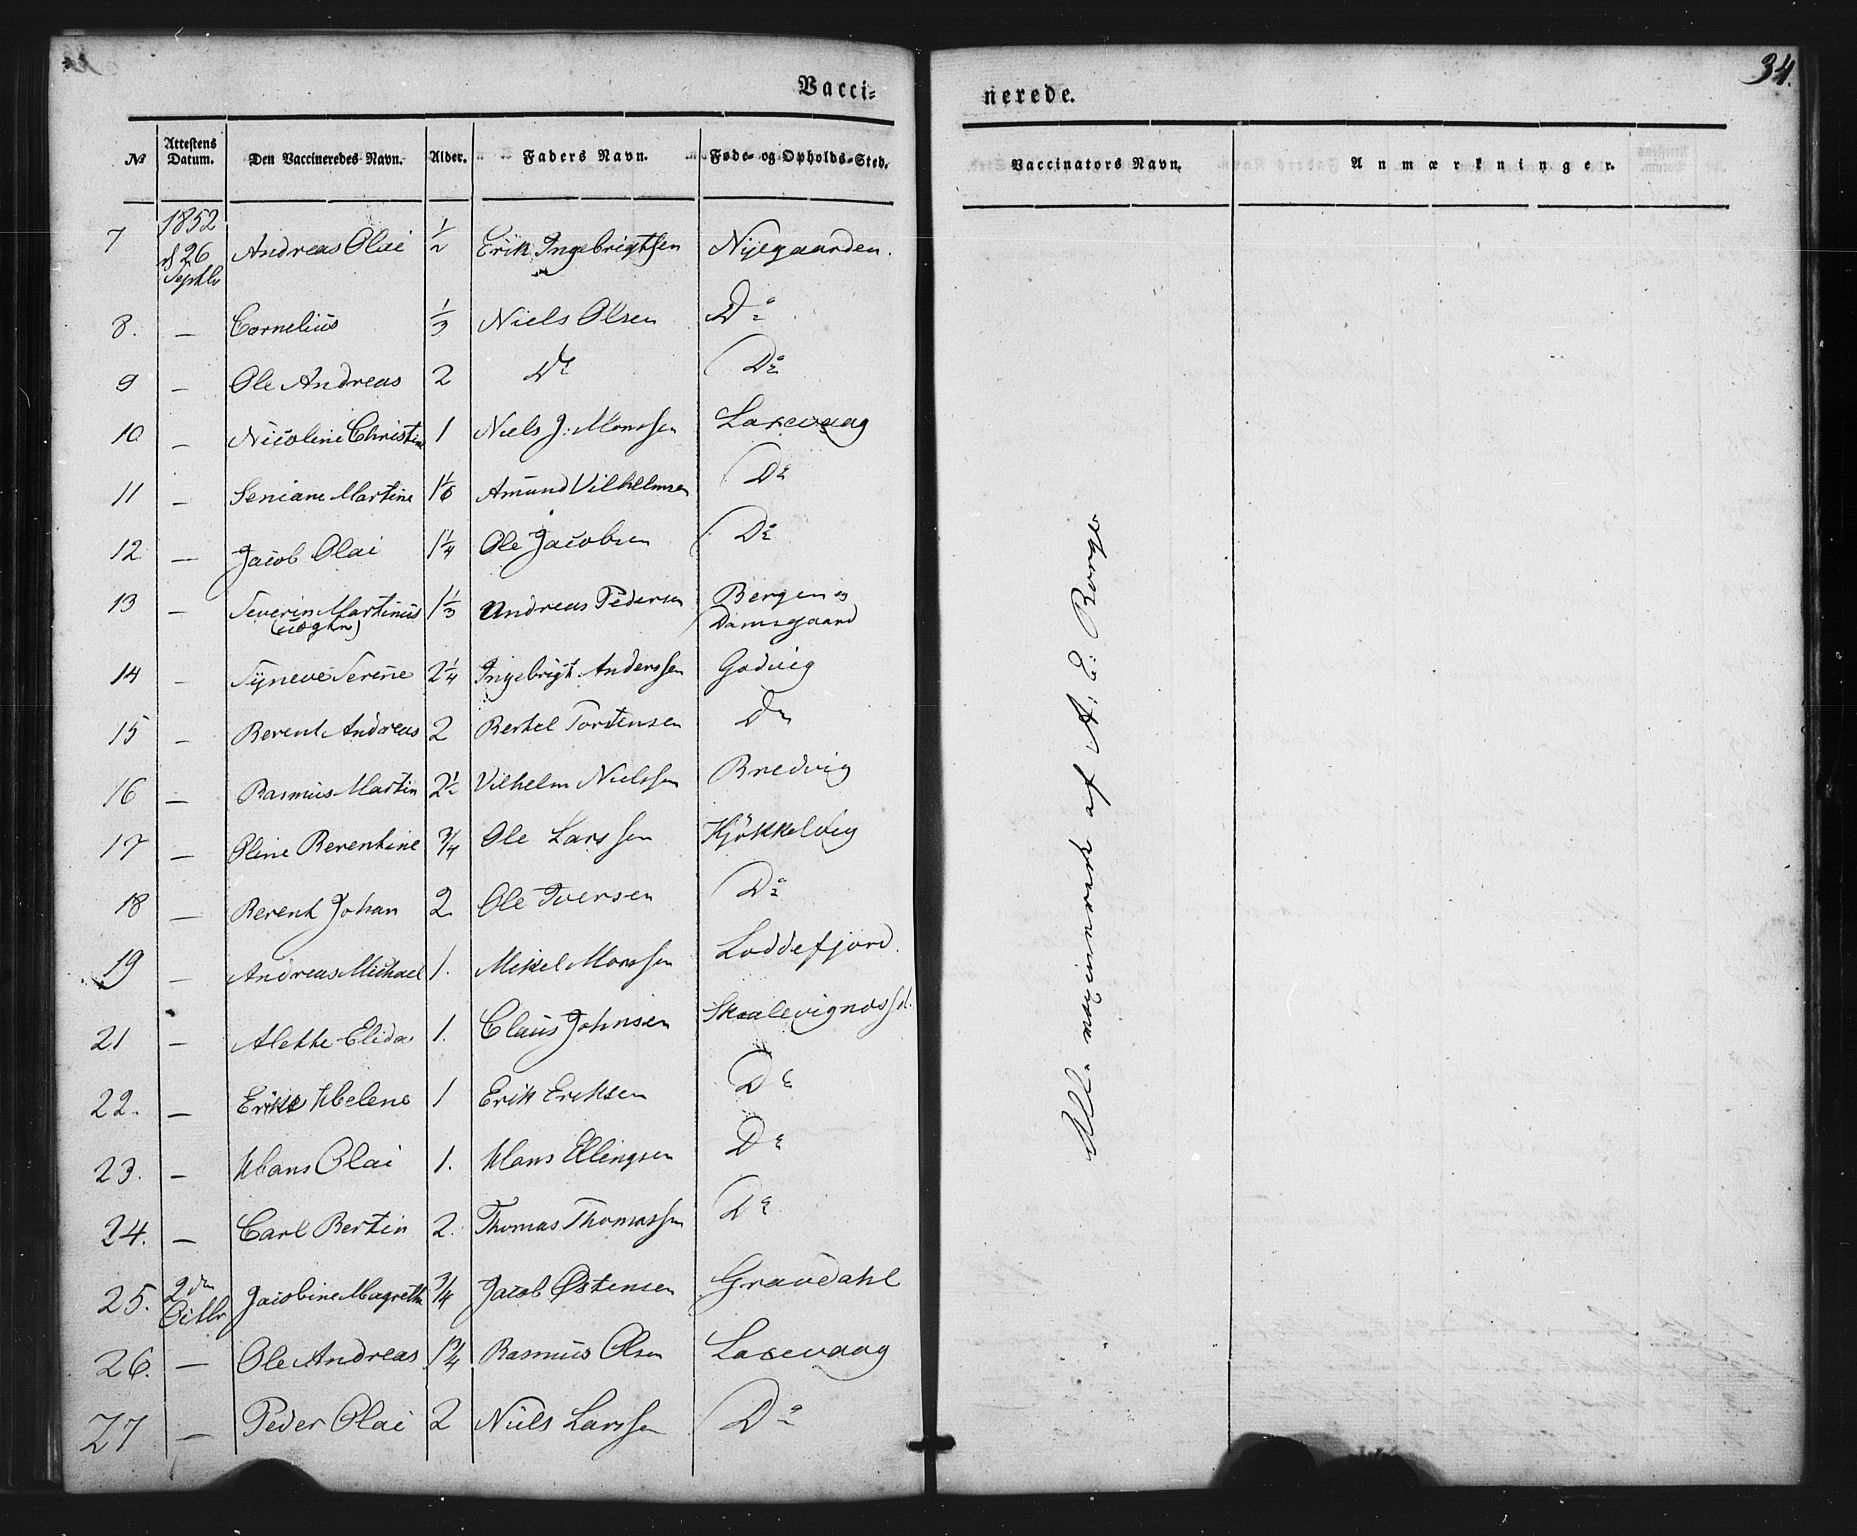 34.
Vacci= nerede.
№ Attestens Datum. Den Vaccineredes Navn. Alder. Faders Navn. Føde- og Opholds-Sted. Vaccinators Navn. Anmærkninger.
7 1852 d 26 Septbr Andreas Olai ½ Erik Ingebrigtsen Nyegaarden.
8. — Cornelius ⅓ Niels Olsen Do
9 — Ole Andreas 2 Do Do
10 — Nicoline Christine 1 Niels J: Monssen Laxevaag
11 — Seniane Martine 1⅙ Amund Vilhelmsen Do
12 — Jacob Olai 1¼ Ole Jacobsen Do
13 — Severin Martinus (uægte) 1⅓ Andreas Pedersen Bergen og Damsgaard
14 — Syneve Serine 2¼ Ingebrigt Anderssen Godvig
15 — Berent Andreas 2 Bertel Torstensen Do
16 — Rasmus Martin 2½ Vilhelm Nielssen Bredvig
17 — Oline Berentine ¾ Ole Larssen Kjøkkelvig
18 — Berent Johan 2 Ole Iversen Do
19 — Andreas Michael 1. Mikel Monssen Loddefjord.
21 — Alette Elida 1. Claus Johnsen Skaalevignæss
22. — Erikke Helene 1 Erik Eriksen Do
23. — Hans Olai 1. Hans Ellingsen Do
24. — Carl Bertin 2. Thomas Thomassen Do
25. 2den Octbr Jacobine Magrethe ¾ Jacob Østensen Gravdahl
26. — Ole Andreas 1¾ Rasmus Olsen Laxevaag
27 — Peder Olai 2 Niels Larssen Do
Alle vaccinerede af A. E: Borge